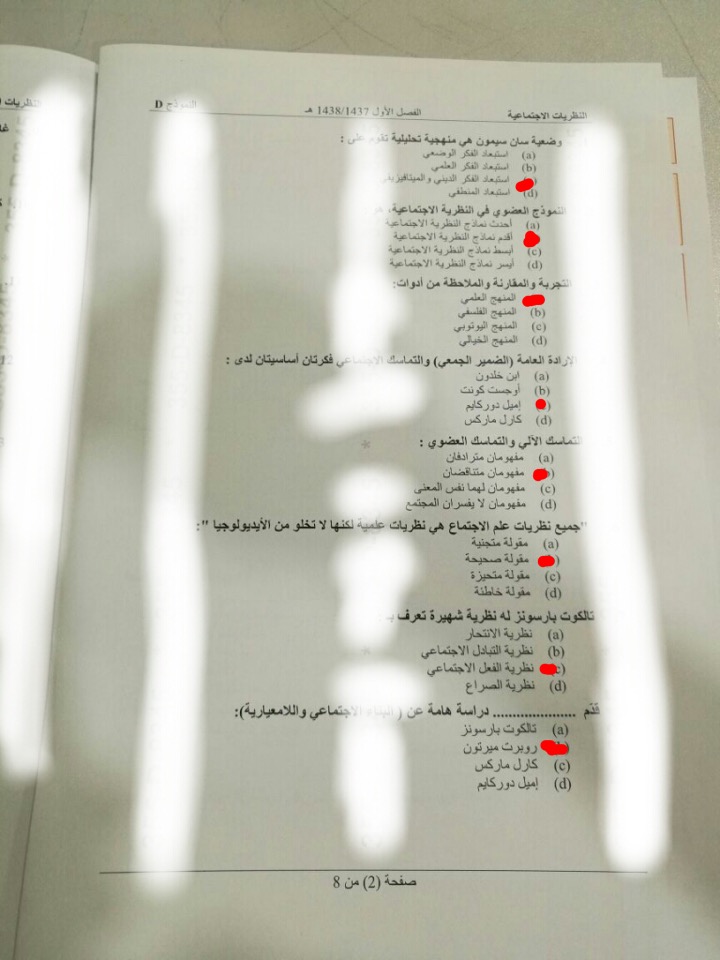 النظريات الاجتماعية
الفصل الأول 1438/1437 هـ
النموذج D
وضعية سان سيمون هي منهجية تحليلية تقوم على :
(a) استبعاد الفكر الوضعي
(b) استبعاد الفكر العلمي
استبعاد الفكر الديني والميتافيزيقي
(d) استبعاد المنطقي
النموذج العضوي في النظرية الاجتماعية، هو
(a) أحدث نماذج النظرية الاجتماعية
أقدم نماذج النظرية الاجتماعية
(c) أبسط نماذج النظرية الاجتماعية
(d) أيسر نماذج النظرية الاجتماعية
التجربة والمقارنة والملاحظة من أدوات:
المنهج العلمي
(b) المنهج الفلسفي
(c) المنهج اليوتوبي
(d) المنهج الخيالي
الارادة العامة (الضمير الجمعي) والتماسك الاجتماعي فكرتان أساسيتان لدى :
(a) ابن خلدون
(b) أوجست كونت
إميل دوركايم
(d) كارل ماركس
التماسك الآلي والتماسك العضوي :
(a) مفهومان مترادفان
مفهومان متناقضان
(c) مفهومان لهما نفس المعنى
(d) مفهومان لا يفسران المجتمع
"جميع نظريات علم الاجتماع هي نظريات علمية لكنها لا تخلو من الأيديولوجيا ":
(a) مقولة متجنية
مقولة صحيحة
(c) مقولة متحيزة
(d) مقولة خاطئة
تالكوت بارسونز له نظرية شهيرة تعرف بـ
(a) نظرية الانتحار
(b) نظرية التبادل الاجتماعي
(c) نظرية الفعل الاجتماعي
(d) نظرية الصراع
قدّم ..................... دراسة هامة عن ( البناء الاجتماعي واللامعيارية):
(a) تالكوت بارسونز
روبرت ميرتون
(c) كارل ماركس
(d) إميل دوركايم
صفحة (2) من 8